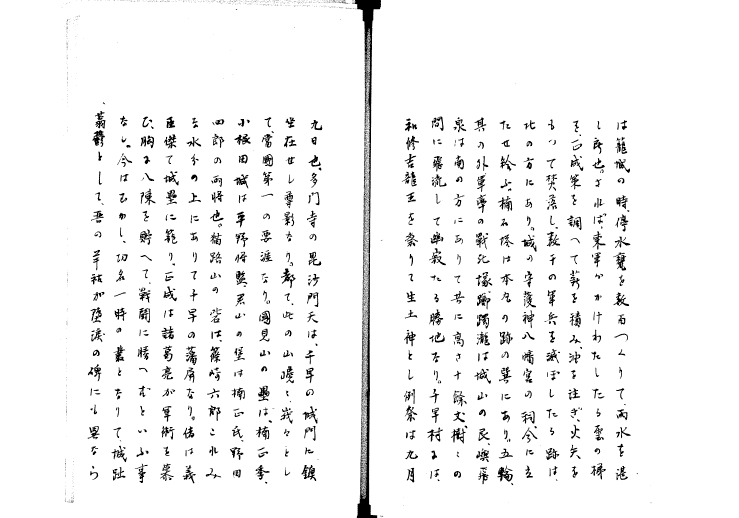 は籠城の時、停水甕を数百つくりて、雨水を湛
し所也。されば東軍がかけわたしたる雲の梯
を、正成策を調へて薪を積み、油を注ぎ、火矢を
もつて焚落し、数千の軍兵を滅ぼしたる跡は、
北の方にあり。城の守護神八幡宮の祠、今に立
たせ給ふ。楠石塔は本丸の跡の巽にあり。五輪、
其の外軍亭の戦死塚、躑躅瀧は城山の艮、嶼
泉は南の方にありて共に高さ十餘丈、樹々の
間に飛流して幽寂たる勝地なり。千早村には、
和修吉龍王を祭りて生土神とし例祭は九月
九日也。多門寺の毘沙門天は、千早の城門に鎮
坐在せし尊影なり。都て、此の山嶢々峨々とし
て、當國第一の要涯なり。國見山の壘は、楠正季、
小根田城は平野将監、君山の堡は楠正氏、野田
四郎の両将也。猫路山の砦は、篠崎六郎これみ
な水分の上にありて千早の藩屏なり。信は義
臣傑て城壘に範り。正成は諸葛亮が軍術を慕
ひ、胸に八陳を貯へて、戦闘に勝へずといふ事
なし。今はむかし、功名一時の叢となりて城趾
蓊鬱として、晋の羊祜が堕涙の碑にも異なら